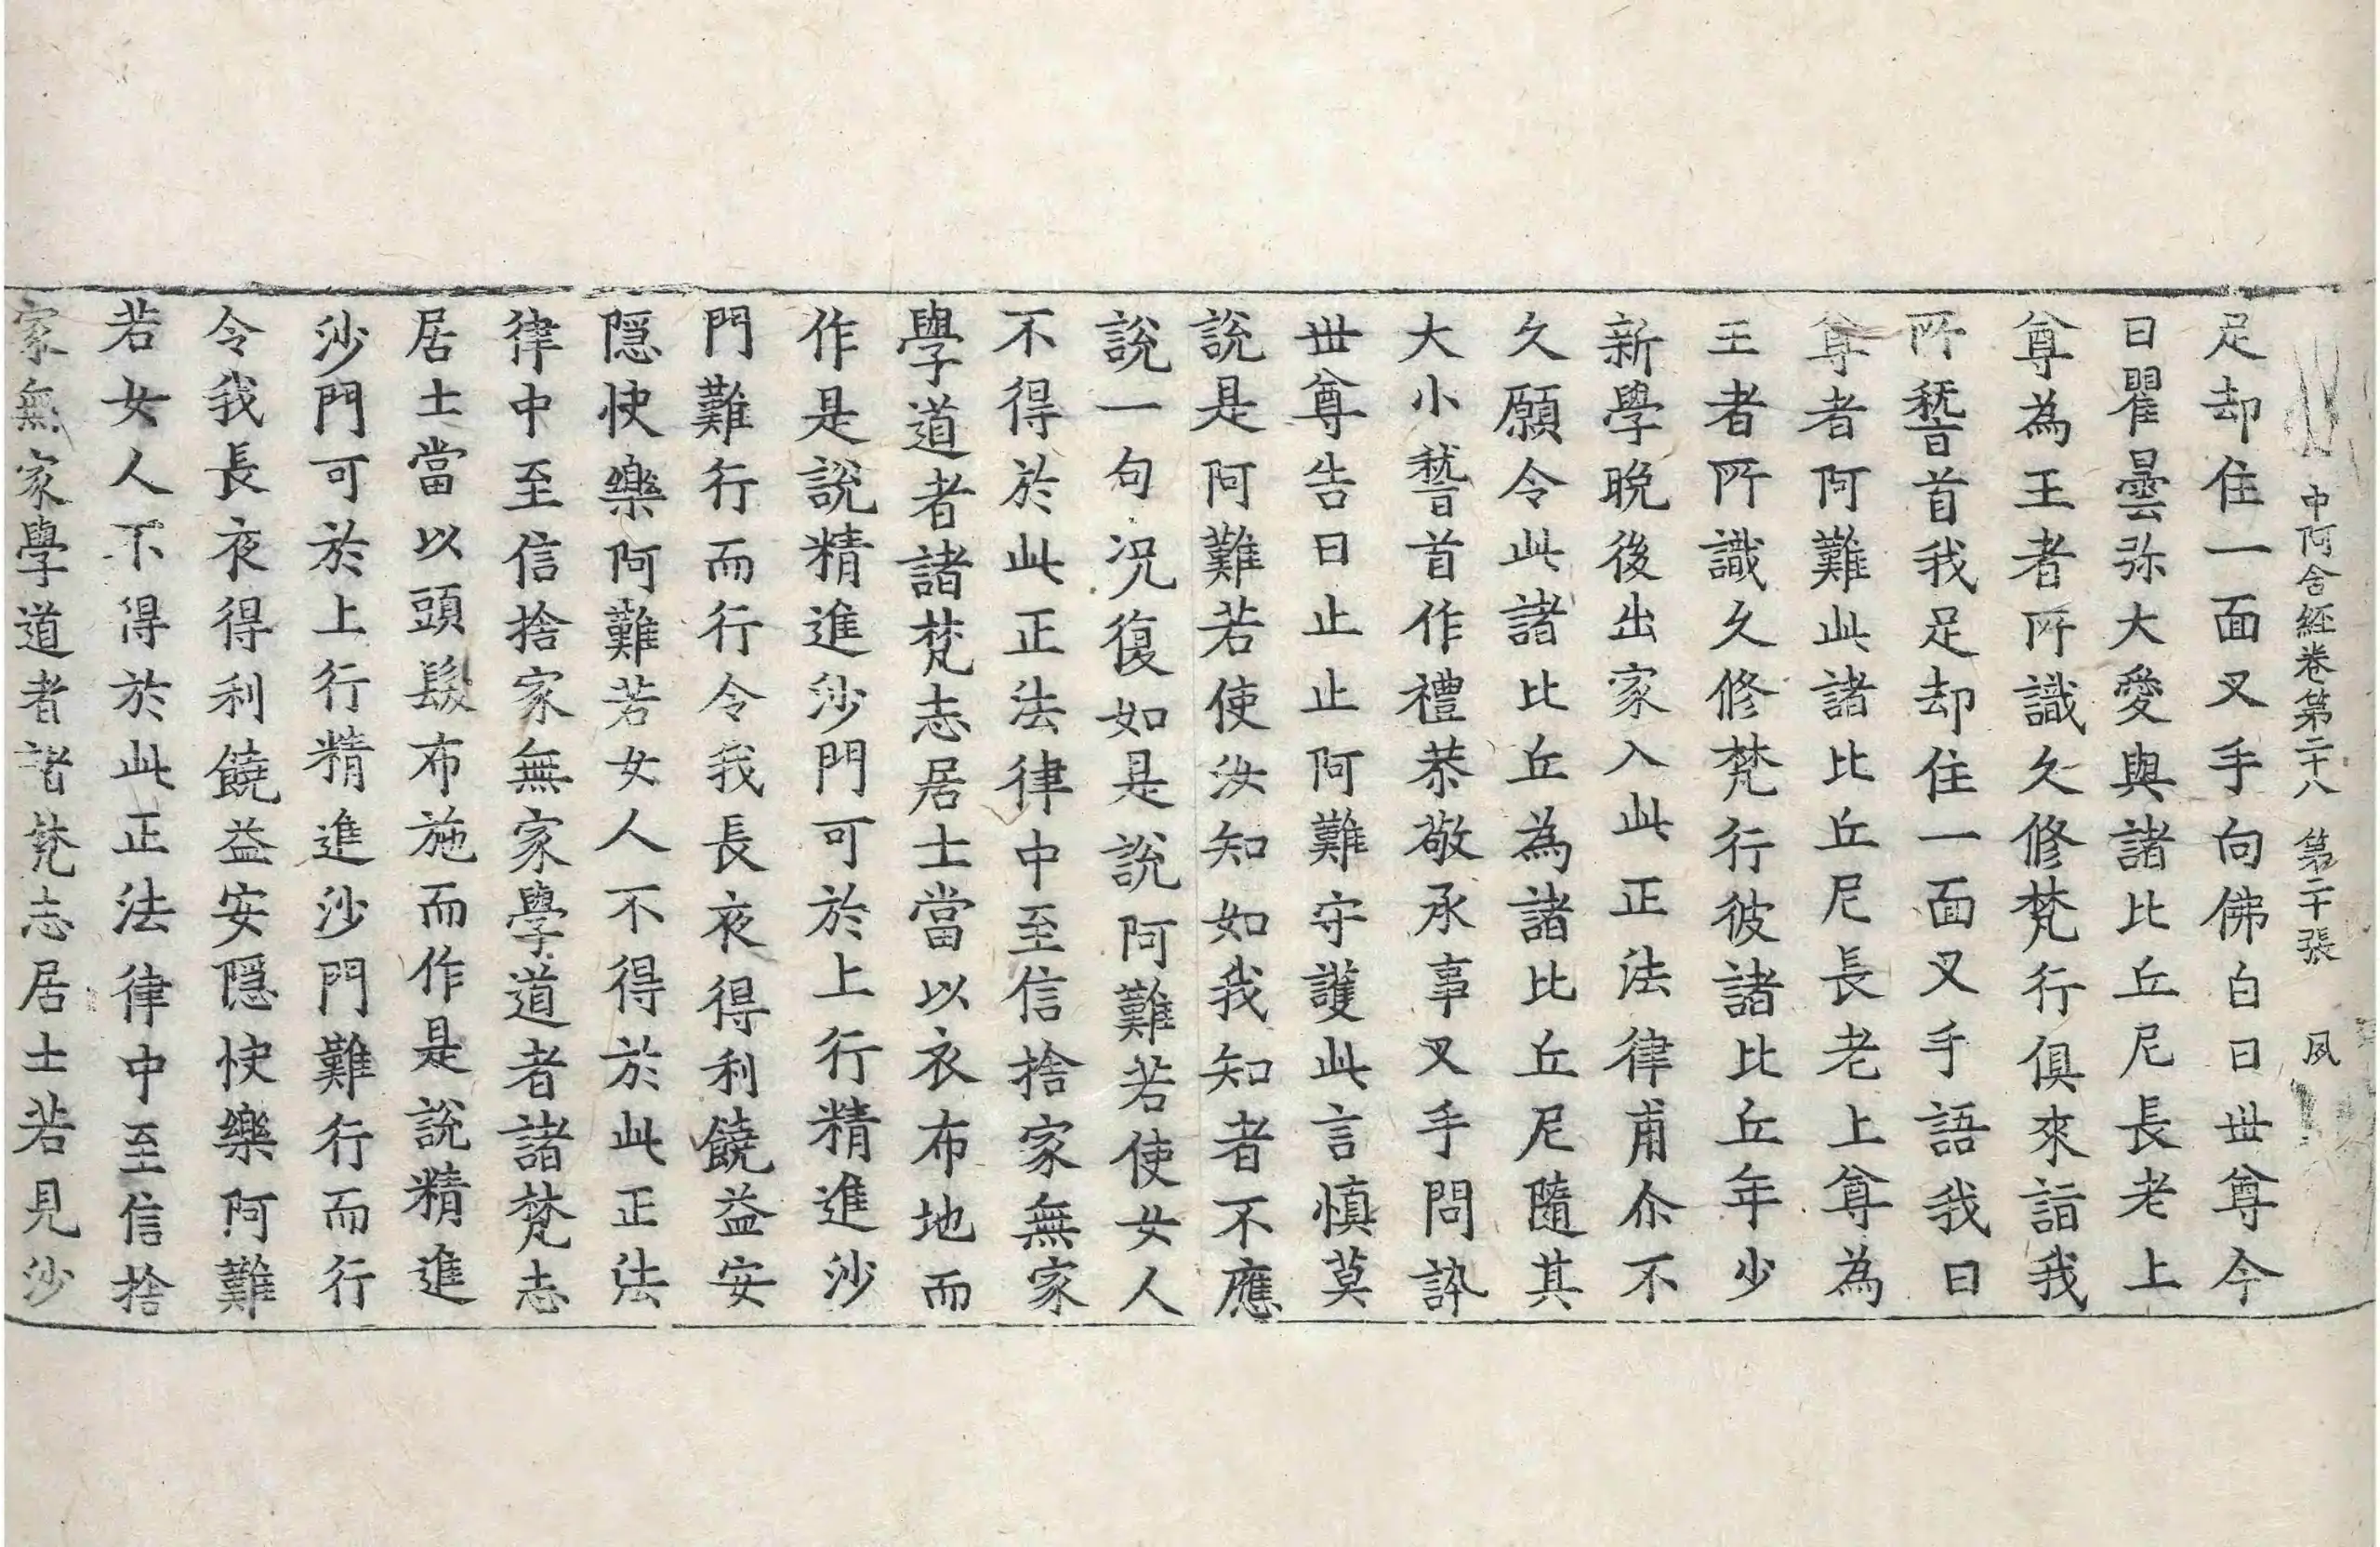 中阿含經卷第二十八　第二十張　夙
足却住一面叉手向佛白曰世尊今
日瞿曇弥大愛與諸比丘尼長老上
尊為王者所識久修梵行俱來詣我
所嵆首我足却住一面叉手語我曰
尊者阿難此諸比丘尼長老上尊為
王者所識久修梵行彼諸比丘年少
新學晚後出家入此正法律甫尒不
久願令此諸比丘為諸比丘尼隨其
大小嵆首作禮恭敬承事叉手問訊
世尊告曰止止阿難守護此言慎莫
說是阿難若使汝知如我知者不應
說一句況復如是說阿難若使女人
不得於此正法律中至信捨家無家
學道者諸梵志居士當以衣布地而
作是說精進沙門可於上行精進沙
門難行而行令我長夜得利饒益安
隱快樂阿難若女人不得於此正法
律中至信捨家無家學道者諸梵志
居士當以頭髮布施而作是說精進
沙門可於上行精進沙門難行而行
令我長夜得利饒益安隱快樂阿難
若女人不得於此正法律中至信捨
家無家學道者諸梵志居士若見沙